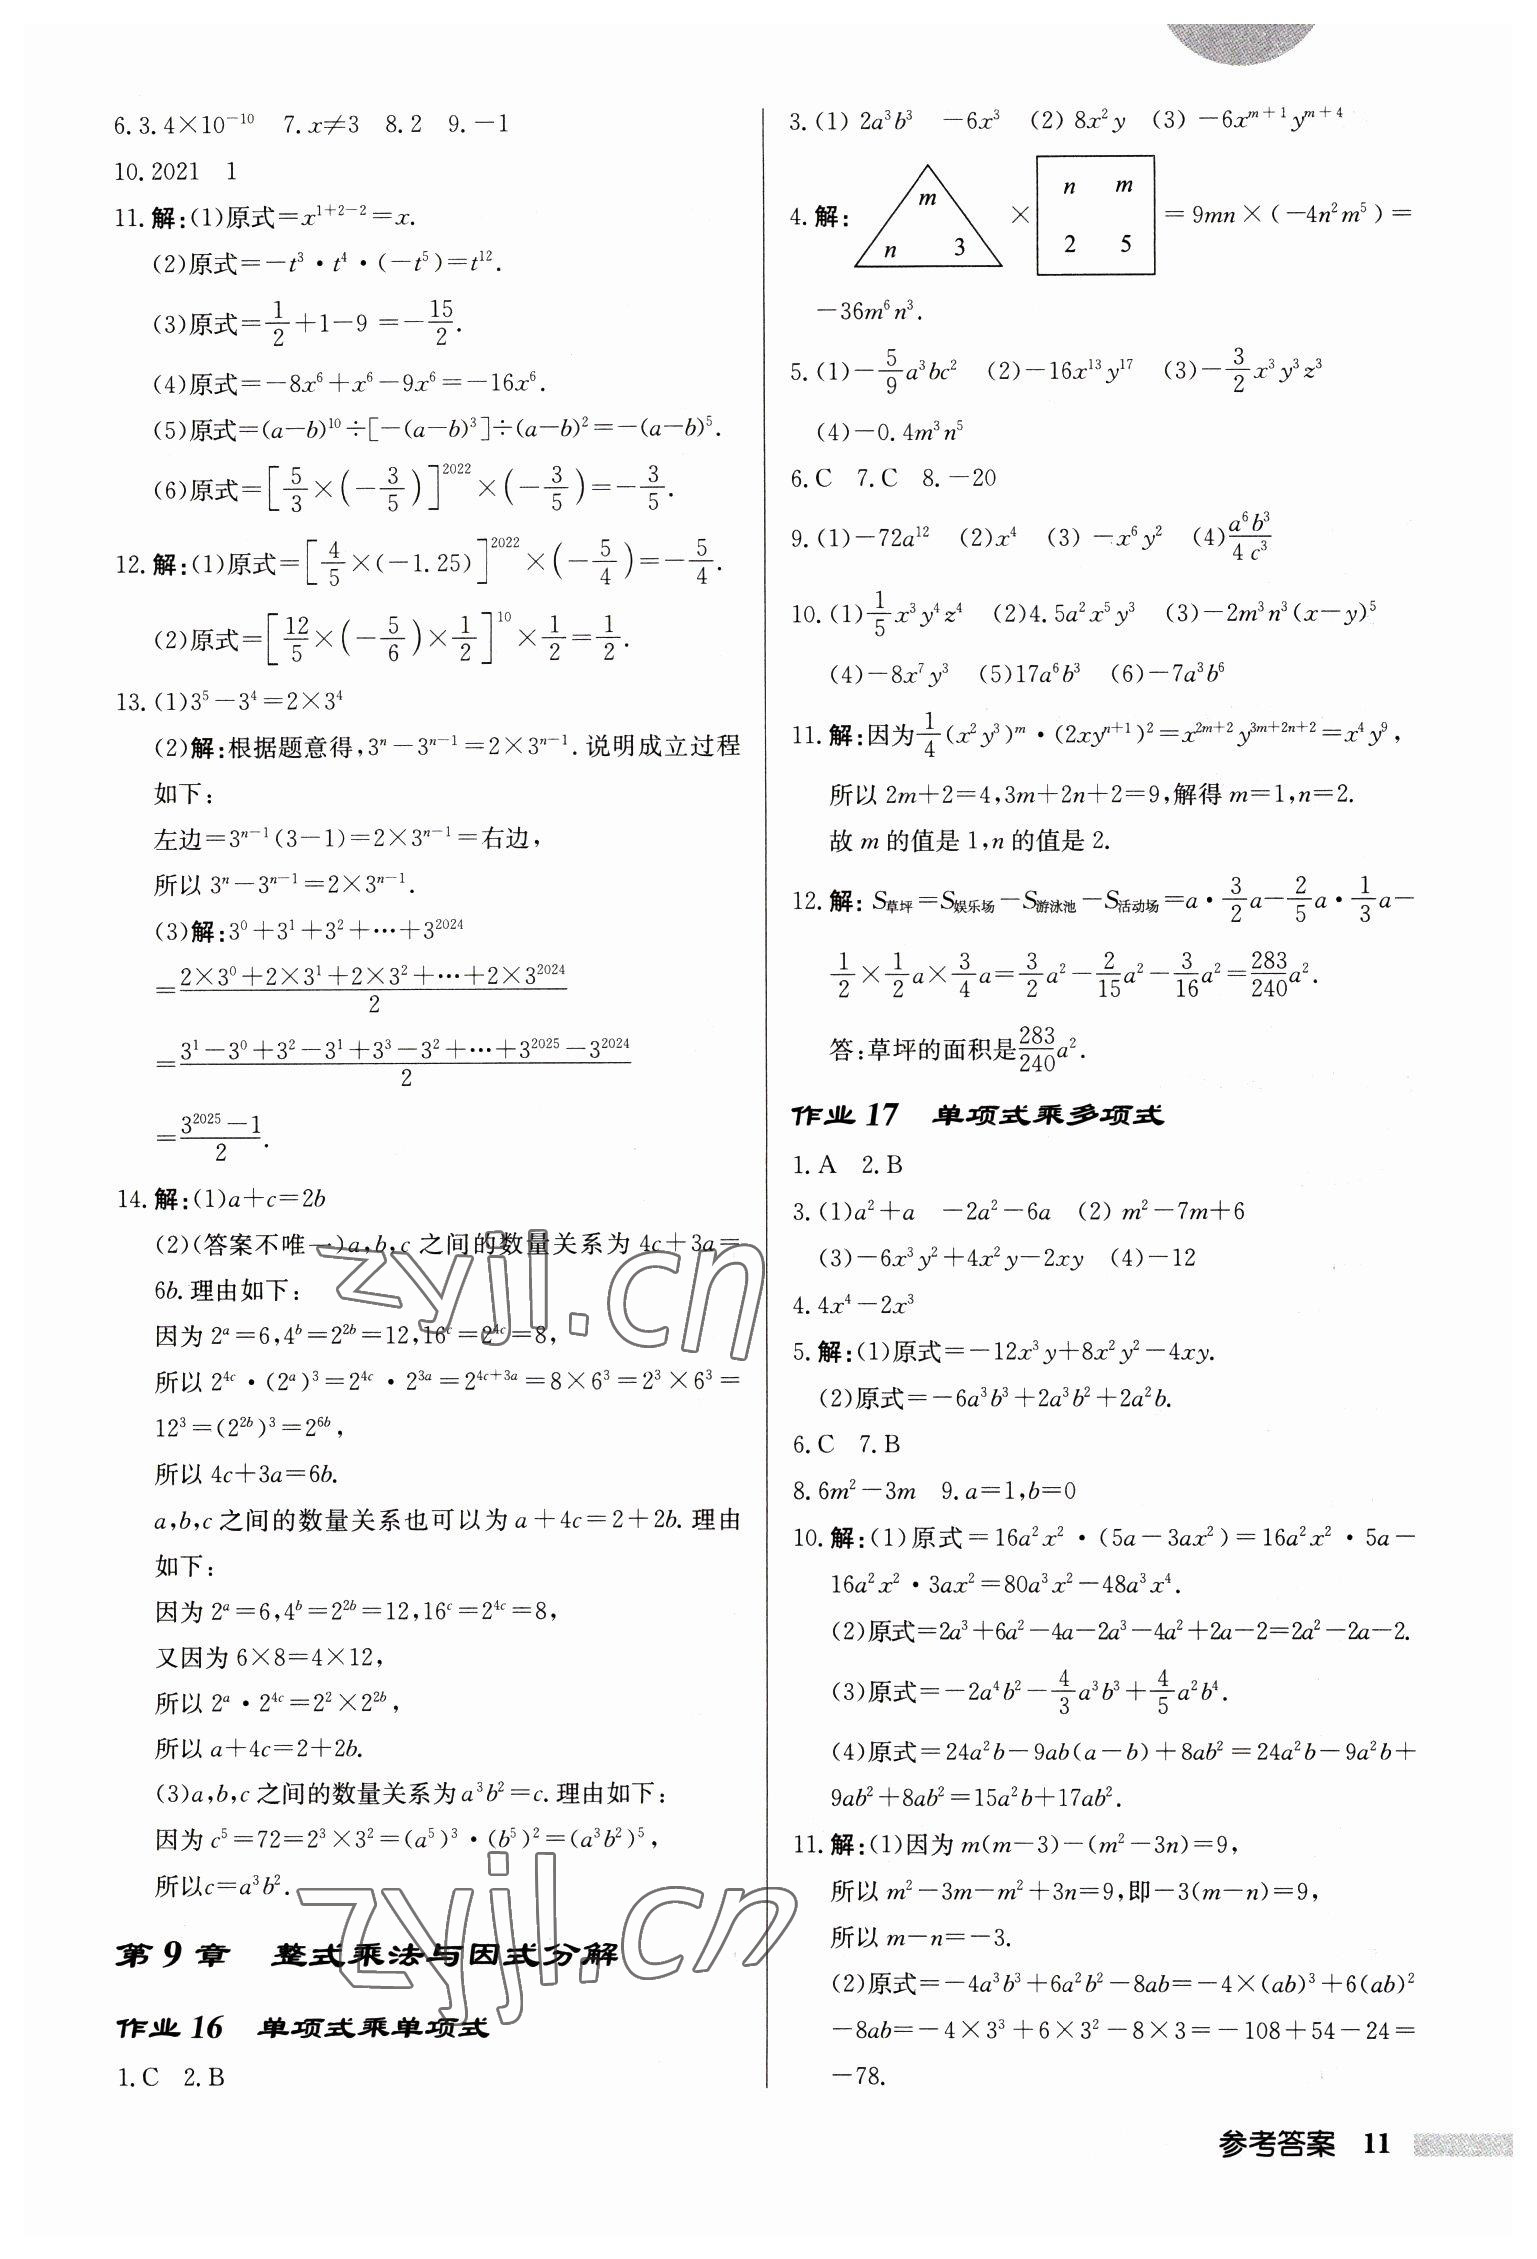 6. 3. 4×10⁻¹⁰ 7. x≠3 8. 2 9. −1
10. 2021 1
11. 解:(1)原式=x¹⁺²⁻²=x.
(2)原式=−t³·t⁴·(−t⁵)=t¹².
(3)原式=1/2+1−9=−15/2.
(4)原式=−8x⁶+x⁶−9x⁶=−16x⁶.
(5)原式=(a−b)¹⁰÷[−(a−b)³]÷(a−b)²=−(a−b)⁵.
(6)原式=[5/3×(−3/5)]²⁰²²×(−3/5)=−3/5.
12. 解:(1)原式=[4/5×(−1.25)]²⁰²²×(−5/4)=−5/4.
(2)原式=[12/5×(−5/6)×1/2]¹⁰×1/2=1/2.
13. (1)3⁵−3⁴=2×3⁴
(2)解:根据题意得,3ⁿ−3ⁿ⁻¹=2×3ⁿ⁻¹.说明成立过程
如下:
左边=3ⁿ⁻¹(3−1)=2×3ⁿ⁻¹=右边,
所以 3ⁿ−3ⁿ⁻¹=2×3ⁿ⁻¹.
(3)解:3⁰+3¹+3²+···+3²⁰²⁴
=(2×3⁰+2×3¹+2×3²+···+2×3²⁰²⁴)/2
=(3¹−3⁰+3²−3¹+3³−3²+···+3²⁰²⁵−3²⁰²⁴)/2
=(3²⁰²⁵−1)/2.
14. 解:(1)a+c=2b
(2)(答案不唯一)a,b,c 之间的数量关系为 4c+3a=
6b.理由如下:
因为 2ᵃ=6,4ᵇ=2²ᵇ=12,16ᶜ=2⁴ᶜ=8,
所以 2⁴ᶜ·(2ᵃ)³=2⁴ᶜ·2³ᵃ=2⁴ᶜ⁺³ᵃ=8×6³=2³×6³=
12³=(2²ᵇ)³=2⁶ᵇ,
所以 4c+3a=6b.
a,b,c 之间的数量关系也可以为 a+4c=2+2b.理由
如下:
因为 2ᵃ=6,4ᵇ=2²ᵇ=12,16ᶜ=2⁴ᶜ=8,
又因为 6×8=4×12,
所以 2ᵃ·2⁴ᶜ=2²×2²ᵇ,
所以 a+4c=2+2b.
(3)a,b,c 之间的数量关系为 a³b²=c.理由如下:
因为 c⁵=72=2³×3²=(a⁵)³·(b⁵)²=(a³b²)⁵,
所以c=a³b².
第 9 章 整式乘法与因式分解
作业 16 单项式乘单项式
1. C 2. B
3. (1) 2a³b³ −6x³ (2) 8x²y (3) −6xᵐ⁺¹yᵐ⁺⁴
4. 解: m n 3 × n m 2 5 =9mn×(−4n²m⁵)=
−36m⁶n³.
5. (1)−5/9a³bc² (2)−16x¹³y¹⁷ (3)−3/2x³y³z³
(4)−0.4m³n⁵
6. C 7. C 8. −20
9. (1)−72a¹² (2)x⁴ (3)−x⁶y² (4)a⁶b³/4c³
10. (1)1/5x³y⁴z⁴ (2)4.5a²x⁵y³ (3)−2m³n³(x−y)⁵
(4)−8x⁷y³ (5)17a⁶b³ (6)−7a³b⁶
11. 解:因为1/4(x²y³)ᵐ·(2xyⁿ⁺¹)²=x²ᵐ⁺²y³ᵐ⁺²ⁿ⁺²=x⁴y⁹,
所以 2m+2=4,3m+2n+2=9,解得 m=1,n=2.
故 m 的值是 1,n 的值是 2.
12. 解:S草坪=S娱乐场−S游泳池−S活动场=a·3/2a−2/5a·1/3a−
1/2×1/2a×3/4a=3/2a²−2/15a²−3/16a²=283/240a².
答:草坪的面积是283/240a².
作业 17 单项式乘多项式
1. A 2. B
3. (1)a²+a −2a²−6a (2) m²−7m+6
(3)−6x³y²+4x²y−2xy (4)−12
4. 4x⁴−2x³
5. 解:(1)原式=−12x³y+8x²y²−4xy.
(2)原式=−6a³b³+2a³b²+2a²b.
6. C 7. B
8. 6m²−3m 9. a=1,b=0
10. 解:(1)原式=16a²x²·(5a−3ax²)=16a²x²·5a−
16a²x²·3ax²=80a³x²−48a³x⁴.
(2)原式=2a³+6a²−4a−2a³−4a²+2a−2=2a²−2a−2.
(3)原式=−2a⁴b²−4/3a³b³+4/5a²b⁴.
(4)原式=24a²b−9ab(a−b)+8ab²=24a²b−9a²b+
9ab²+8ab²=15a²b+17ab².
11. 解:(1)因为 m(m−3)−(m²−3n)=9,
所以 m²−3m−m²+3n=9,即−3(m−n)=9,
所以 m−n=−3.
(2)原式=−4a³b³+6a²b²−8ab=−4×(ab)³+6(ab)²
−8ab=−4×3³+6×3²−8×3=−108+54−24=
−78.
zyjl.cn
zyjl.cn
参考答案 11